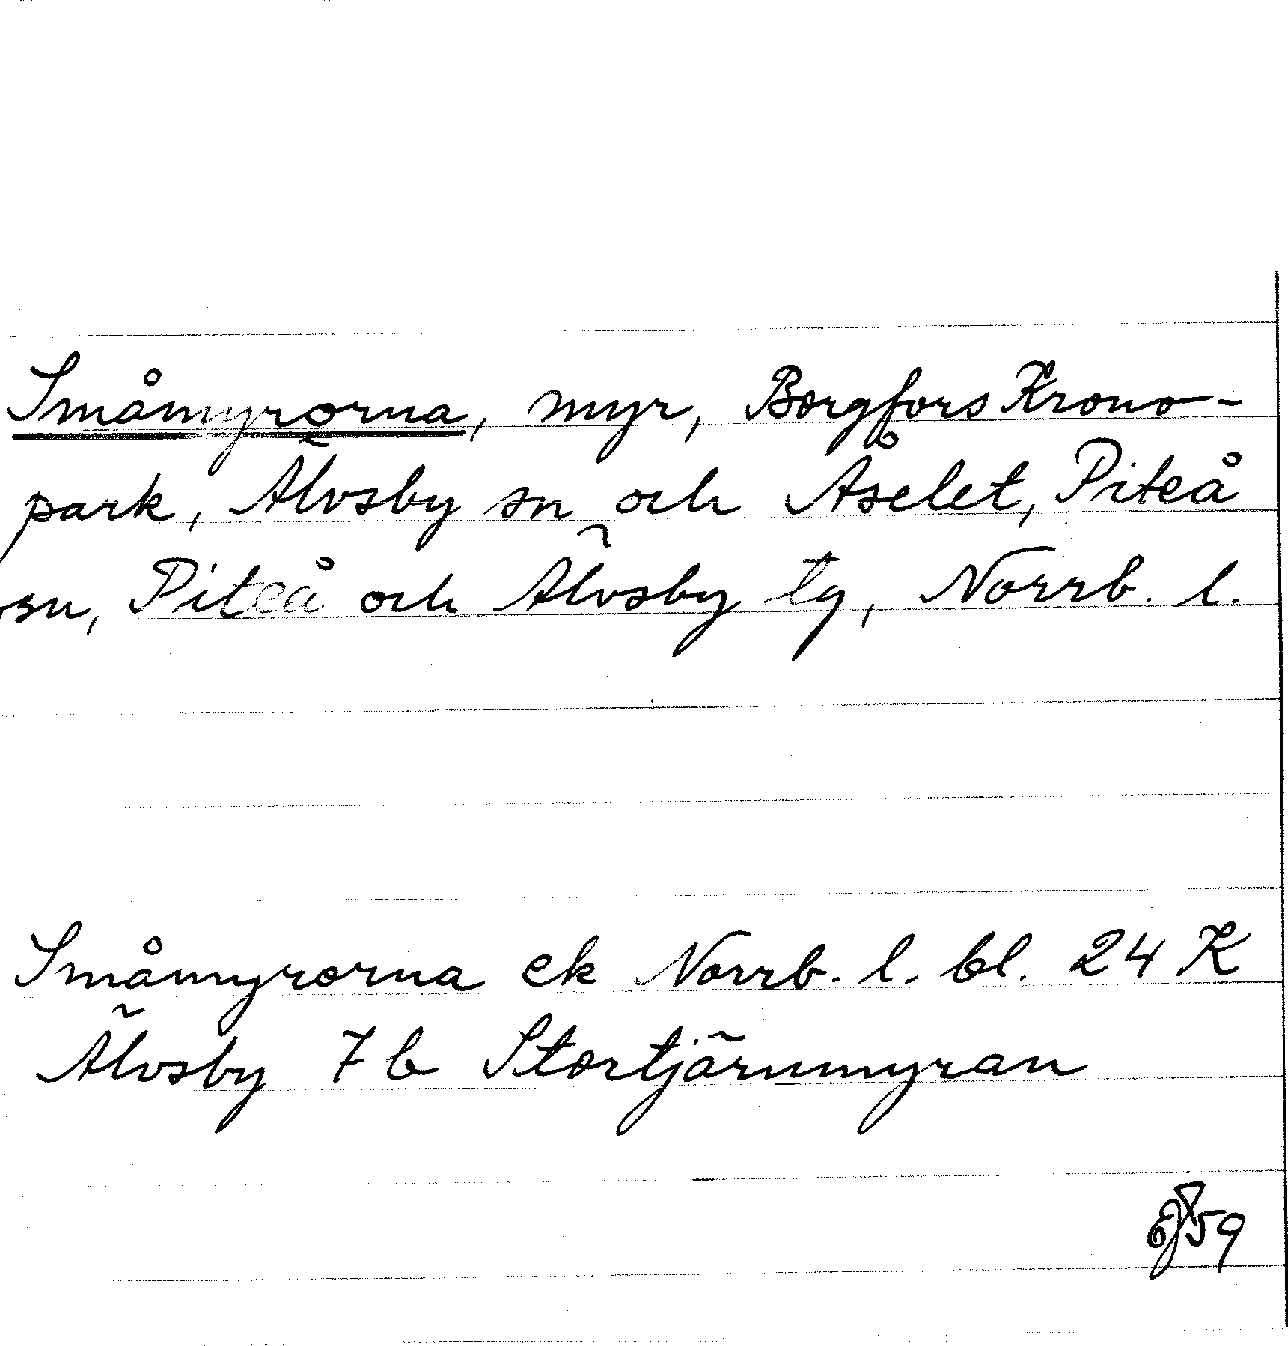 Småmyrorna, myr, Borgfors Krono-
park, Älvsby sn och Åselet, Piteå
sn, Piteå och Älvsby tg, Norrb. l.
Småmyrorna ek Norrb. l. bl. 24 K
Älvsby 7 b Stortjärnmyran
59